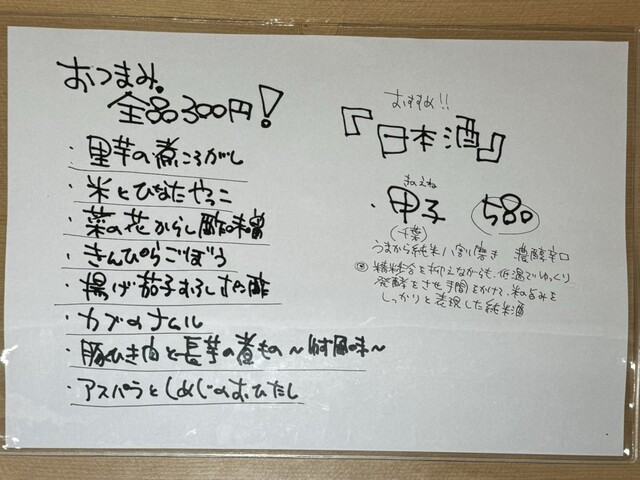 おつまみ。
全品300円！
・里芋の煮ころがし
・米とひなたやっこ
・菜の花からし酢味噌
・きんぴらごぼう
・揚げ茄子むらしポン酢
・カブのナムル
・豚ひき肉と長芋の煮もの〜風味〜
・アスパラとしめじのおひたし
おすすめ!!
『日本酒』
きのえね
・甲子 580
(千葉)
うまから純米八割磨き 濃醇辛口
精米歩合を抑えながらも、低温でゆっくり
発酵をさせ手間をかけて、米の旨みを
しっかりと表現した純米酒